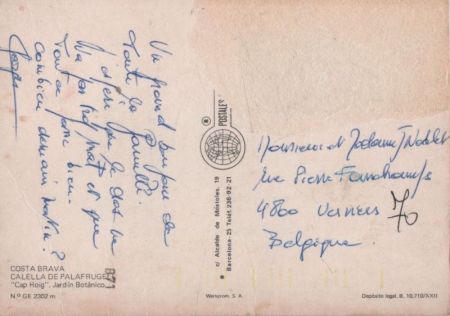 Un grand bonjour de
toute la famille.
J'espère que le dos ne
va pas trop mal et que
tout se passe bien.
Combien demain matin ?
Monsieur et Madame J Nodet
rue Pierre
4800 Verviers
70
Belgique
COSTA BRAVA
CALELLA DE PALAFRUGELL
"Cap Roig". Jardín Botánico
N.º GE 2302 m
871
® POSTALES
c/ Alcalde de Móstoles, 19
Barcelona-25 Teléf. 236-92-21
S. A.
Depósito legal. B. 10.710/XXII